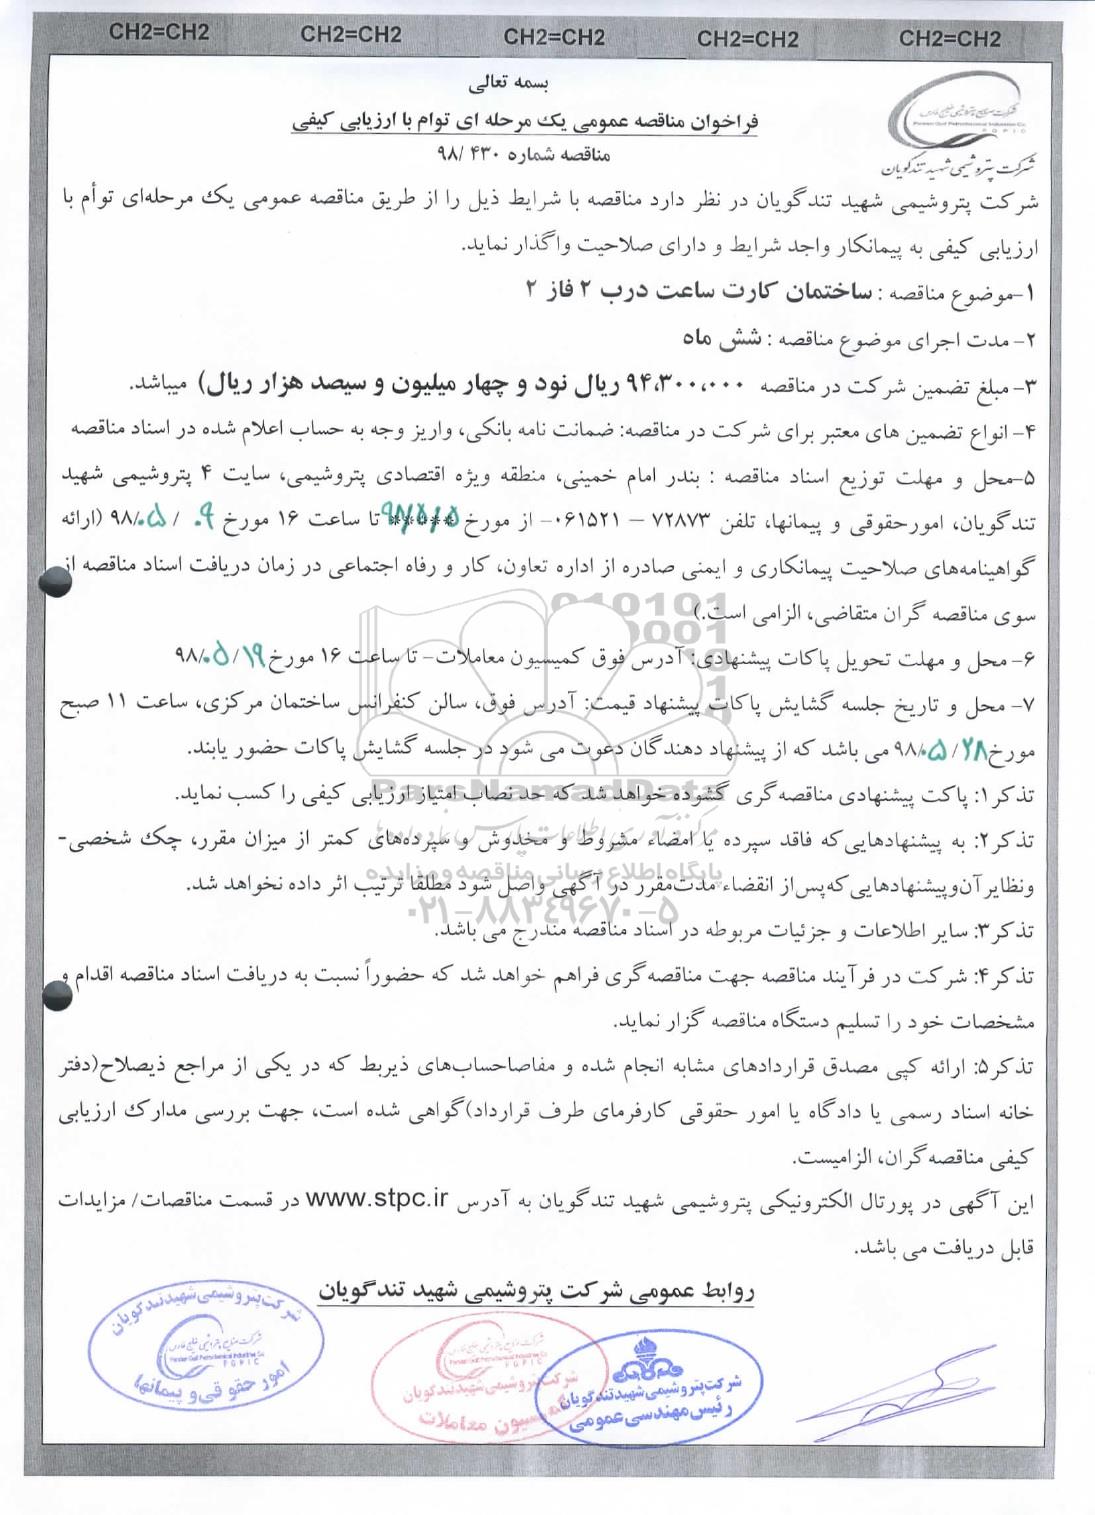 CH2=CH2 CH2=CH2 CH2=CH2 CH2=CH2 CH2=CH2
بسمه تعالی
شرکت صنایع پتروشیمی خلیج فارس
Persian Gulf Petrochemical Industries Co.
PGPIC
شرکت پتروشیمی شهید تندگویان
فراخوان مناقصه عمومی یک مرحله ای توام با ارزیابی کیفی
مناقصه شماره ۴۳۰ /۹۸
شرکت پتروشیمی شهید تندگویان در نظر دارد مناقصه با شرایط ذیل را از طریق مناقصه عمومی یک مرحله‌ای توأم با
ارزیابی کیفی به پیمانکار واجد شرایط و دارای صلاحیت واگذار نماید.
۱-موضوع مناقصه : ساختمان کارت ساعت درب ۲ فاز ۲
۲- مدت اجرای موضوع مناقصه : شش ماه
۳- مبلغ تضمین شرکت در مناقصه ۹۴،۳۰۰،۰۰۰ ریال نود و چهار میلیون و سیصد هزار ریال) میباشد.
۴- انواع تضمین های معتبر برای شرکت در مناقصه: ضمانت نامه بانکی، واریز وجه به حساب اعلام شده در اسناد مناقصه
۵-محل و مهلت توزیع اسناد مناقصه : بندر امام خمینی، منطقه ویژه اقتصادی پتروشیمی، سایت ۴ پتروشیمی شهید
تندگویان، امورحقوقی و پیمانها، تلفن ۷۲۸۷۳ – ۰۶۱۵۲۱- از مورخ تا ساعت ۱۶ مورخ ۰۹ / ۰۵/ ۹۸ (ارائه
گواهینامه‌های صلاحیت پیمانکاری و ایمنی صادره از اداره تعاون، کار و رفاه اجتماعی در زمان دریافت اسناد مناقصه از
سوی مناقصه گران متقاضی، الزامی است.)
۶- محل و مهلت تحویل پاکات پیشنهادی: آدرس فوق کمیسیون معاملات- تا ساعت ۱۶ مورخ ۱۹/ ۰۵/ ۹۸
۷- محل و تاریخ جلسه گشایش پاکات پیشنهاد قیمت: آدرس فوق، سالن کنفرانس ساختمان مرکزی، ساعت ۱۱ صبح
مورخ ۲۸/ ۰۵/ ۹۸ می باشد که از پیشنهاد دهندگان دعوت می شود در جلسه گشایش پاکات حضور یابند.
تذکر۱: پاکت پیشنهادی مناقصه‌گری گشوده خواهد شد که حد نصاب امتیاز ارزیابی کیفی را کسب نماید.
ParsNamadData
مرکز فرآوری اطلاعات پارس نماد داده‌ها
تذکر۲: به پیشنهادهایی‌که فاقد سپرده یا امضاء مشروط و مخدوش و سپرده‌های کمتر از میزان مقرر، چک شخصی-
پایگاه اطلاع رسانی مناقصه و مزایده
ونظایر آن‌وپیشنهادهایی‌که‌پس‌از انقضاء مدت‌مقرر در آگهی واصل شود مطلقاً ترتیب اثر داده نخواهد شد.
۰۲۱-۸۸۳۴۹۶۷۰-۵
تذکر۳: سایر اطلاعات و جزئیات مربوطه در اسناد مناقصه مندرج می باشد.
تذکر۴: شرکت در فرآیند مناقصه جهت مناقصه‌گری فراهم خواهد شد که حضوراً نسبت به دریافت اسناد مناقصه اقدام و
مشخصات خود را تسلیم دستگاه مناقصه گزار نماید.
تذکر۵: ارائه کپی مصدق قراردادهای مشابه انجام شده و مفاصاحساب‌های ذیربط که در یکی از مراجع ذیصلاح(دفتر
خانه اسناد رسمی یا دادگاه یا امور حقوقی کارفرمای طرف قرارداد)گواهی شده است، جهت بررسی مدارک ارزیابی
کیفی مناقصه‌گران، الزامیست.
این آگهی در پورتال الکترونیکی پتروشیمی شهید تندگویان به آدرس www.stpc.ir در قسمت مناقصات/ مزایدات
قابل دریافت می باشد.
روابط عمومی شرکت پتروشیمی شهید تندگویان
شرکت پتروشیمی شهید تندگویان
امور حقوقی و پیمانها
شرکت پتروشیمی شهید تندگویان
کمیسیون معاملات
شرکت پتروشیمی شهید تندگویان
رئیس مهندسی عمومی